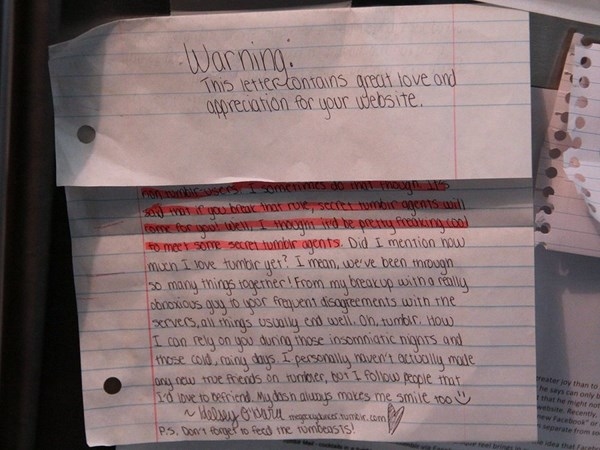 Warning:
This letter contains great love and
appreciation for your website.
non tumblr-users. I sometimes do that though. It's
said that if you break that rule, secret tumblr agents will
come for you! Well, I thought it'd be pretty freaking cool
to meet some secret tumblr agents. Did I mention how
much I love tumblr yet? I mean, we've been through
so many things together! From my breakup with a really
obnoxious guy to your frequent disagreements with the
servers, all things usually end well. Oh, tumblr. How
I can rely on you during those insomniatic nights and
those cold, rainy days. I personally haven't actually made
any new true friends on tumbler, but I follow people that
I'd love to befriend. My dash always makes me smile too
~ .tumblr.com
P.S. Don't forget to feed the tumbeasts!
greater joy than to
he says can only b
that he might not
website. Recently,
new Facebook" or
separate from
idea that